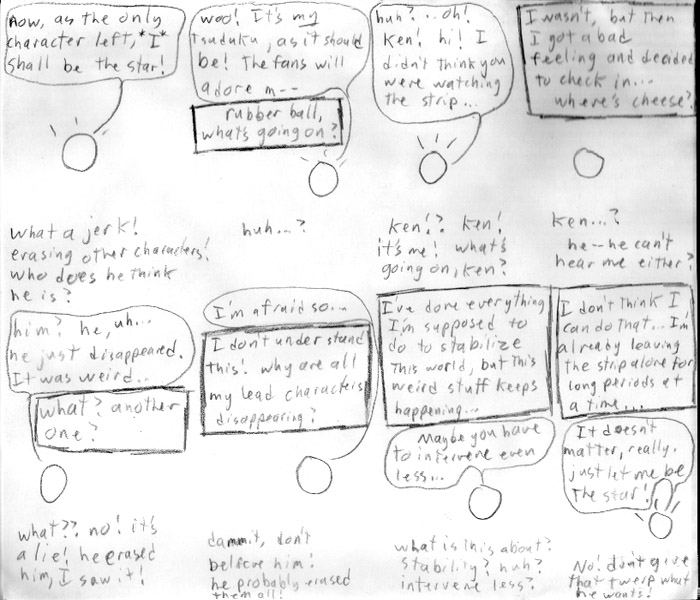 now, as the only
character left, *I*
shall be the star!
woo! It's my
Tsuduku, as it should
be! The fans will
adore m--
rubber ball,
what's going on?
huh?.. oh!
Ken! hi! I
didn't think you
were watching
the strip...
I wasn't, but then
I got a bad
feeling and decided
to check in...
where's cheese?
what a jerk!
erasing other characters!
who does he think
he is?
huh...?
Ken!? Ken!
it's me! what's
going on, Ken?
Ken...?
he--he can't
hear me either?
him? he, uh...
he just disappeared.
It was weird...
what? another
one?
I'm afraid so...
I don't understand
this! why are all
my lead characters
disappearing?
I've done everything
I'm supposed to
do to stabilize
this world, but this
weird stuff keeps
happening...
Maybe you have
to intervene even
less...
I don't think I
can do that... I'm
already leaving
the strip alone for
long periods at
a time...
It doesn't
matter, really.
just let me be
the star!
what?? no! it's
a lie! he erased
him, I saw it!
dammit, don't
believe him!
he probably erased
them all!
what is this about?
stability? huh?
intervene less?
No! don't give
that twerp what
he wants!